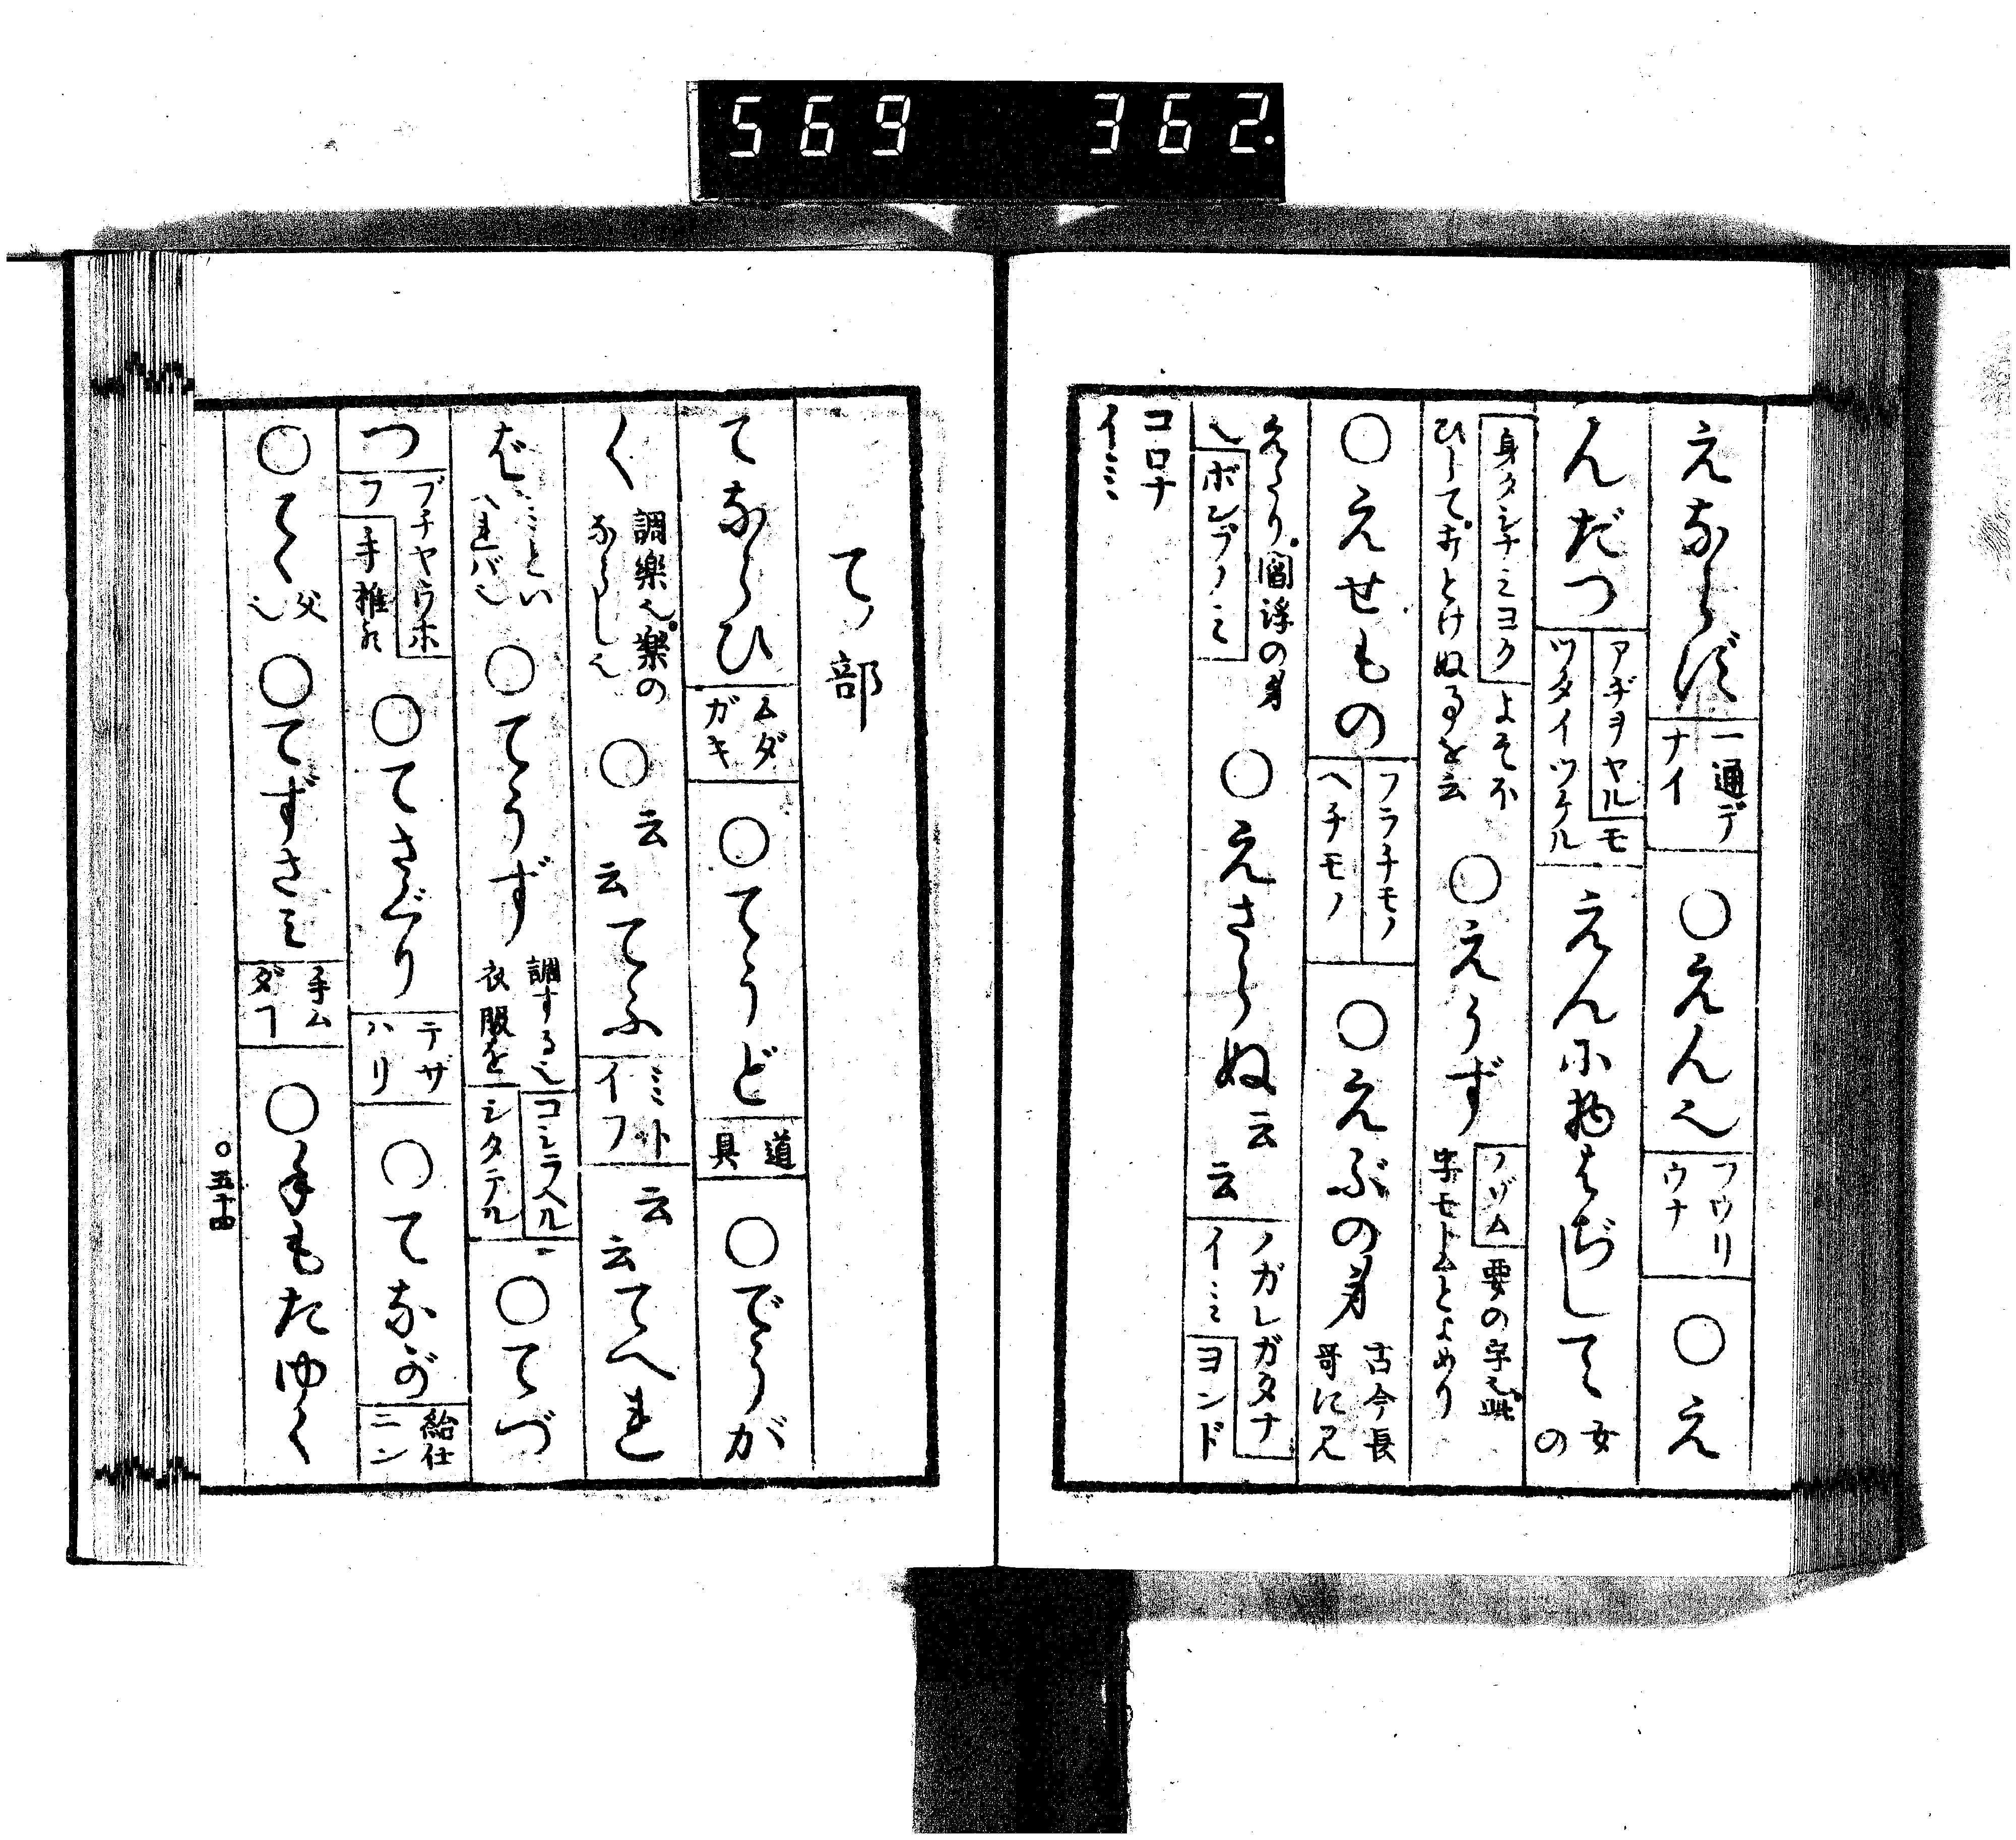 569 362.
えならず 一通デナイ ○えん也 フウリウナ ○え
んだつ アヂヲヤルモツタイツケル えんに物はぢして 女の
身タシナミヨク よそほひしておとけぬるを云 ○えうず ノゾム 要の字也此字モトムとよめり
○えせもの フラチモノ ヘチモノ ○えぶの身 古今長哥に見
えたり閻浮の身也 ボンブノミ ○えさらぬ 云云 ノガレガタナイミ ヨンドコロナイミ
てノ部
てならひ ムダガキ ○てうど 道具 ○でうが
く 調樂也樂のならし也 ○云云てふ ミトイフ 云云てへれ
ば ミといへればⱼ ○てうず 調する也 コシラヘル 衣服を シタテル ○てづ
つ ブチヤウホフ 手 ○てさぐり テザハリ ○てながⱼ 給仕ニン
○てて 父也 ○てずさみ 手ムダフ ○手もたゆく
○五十四